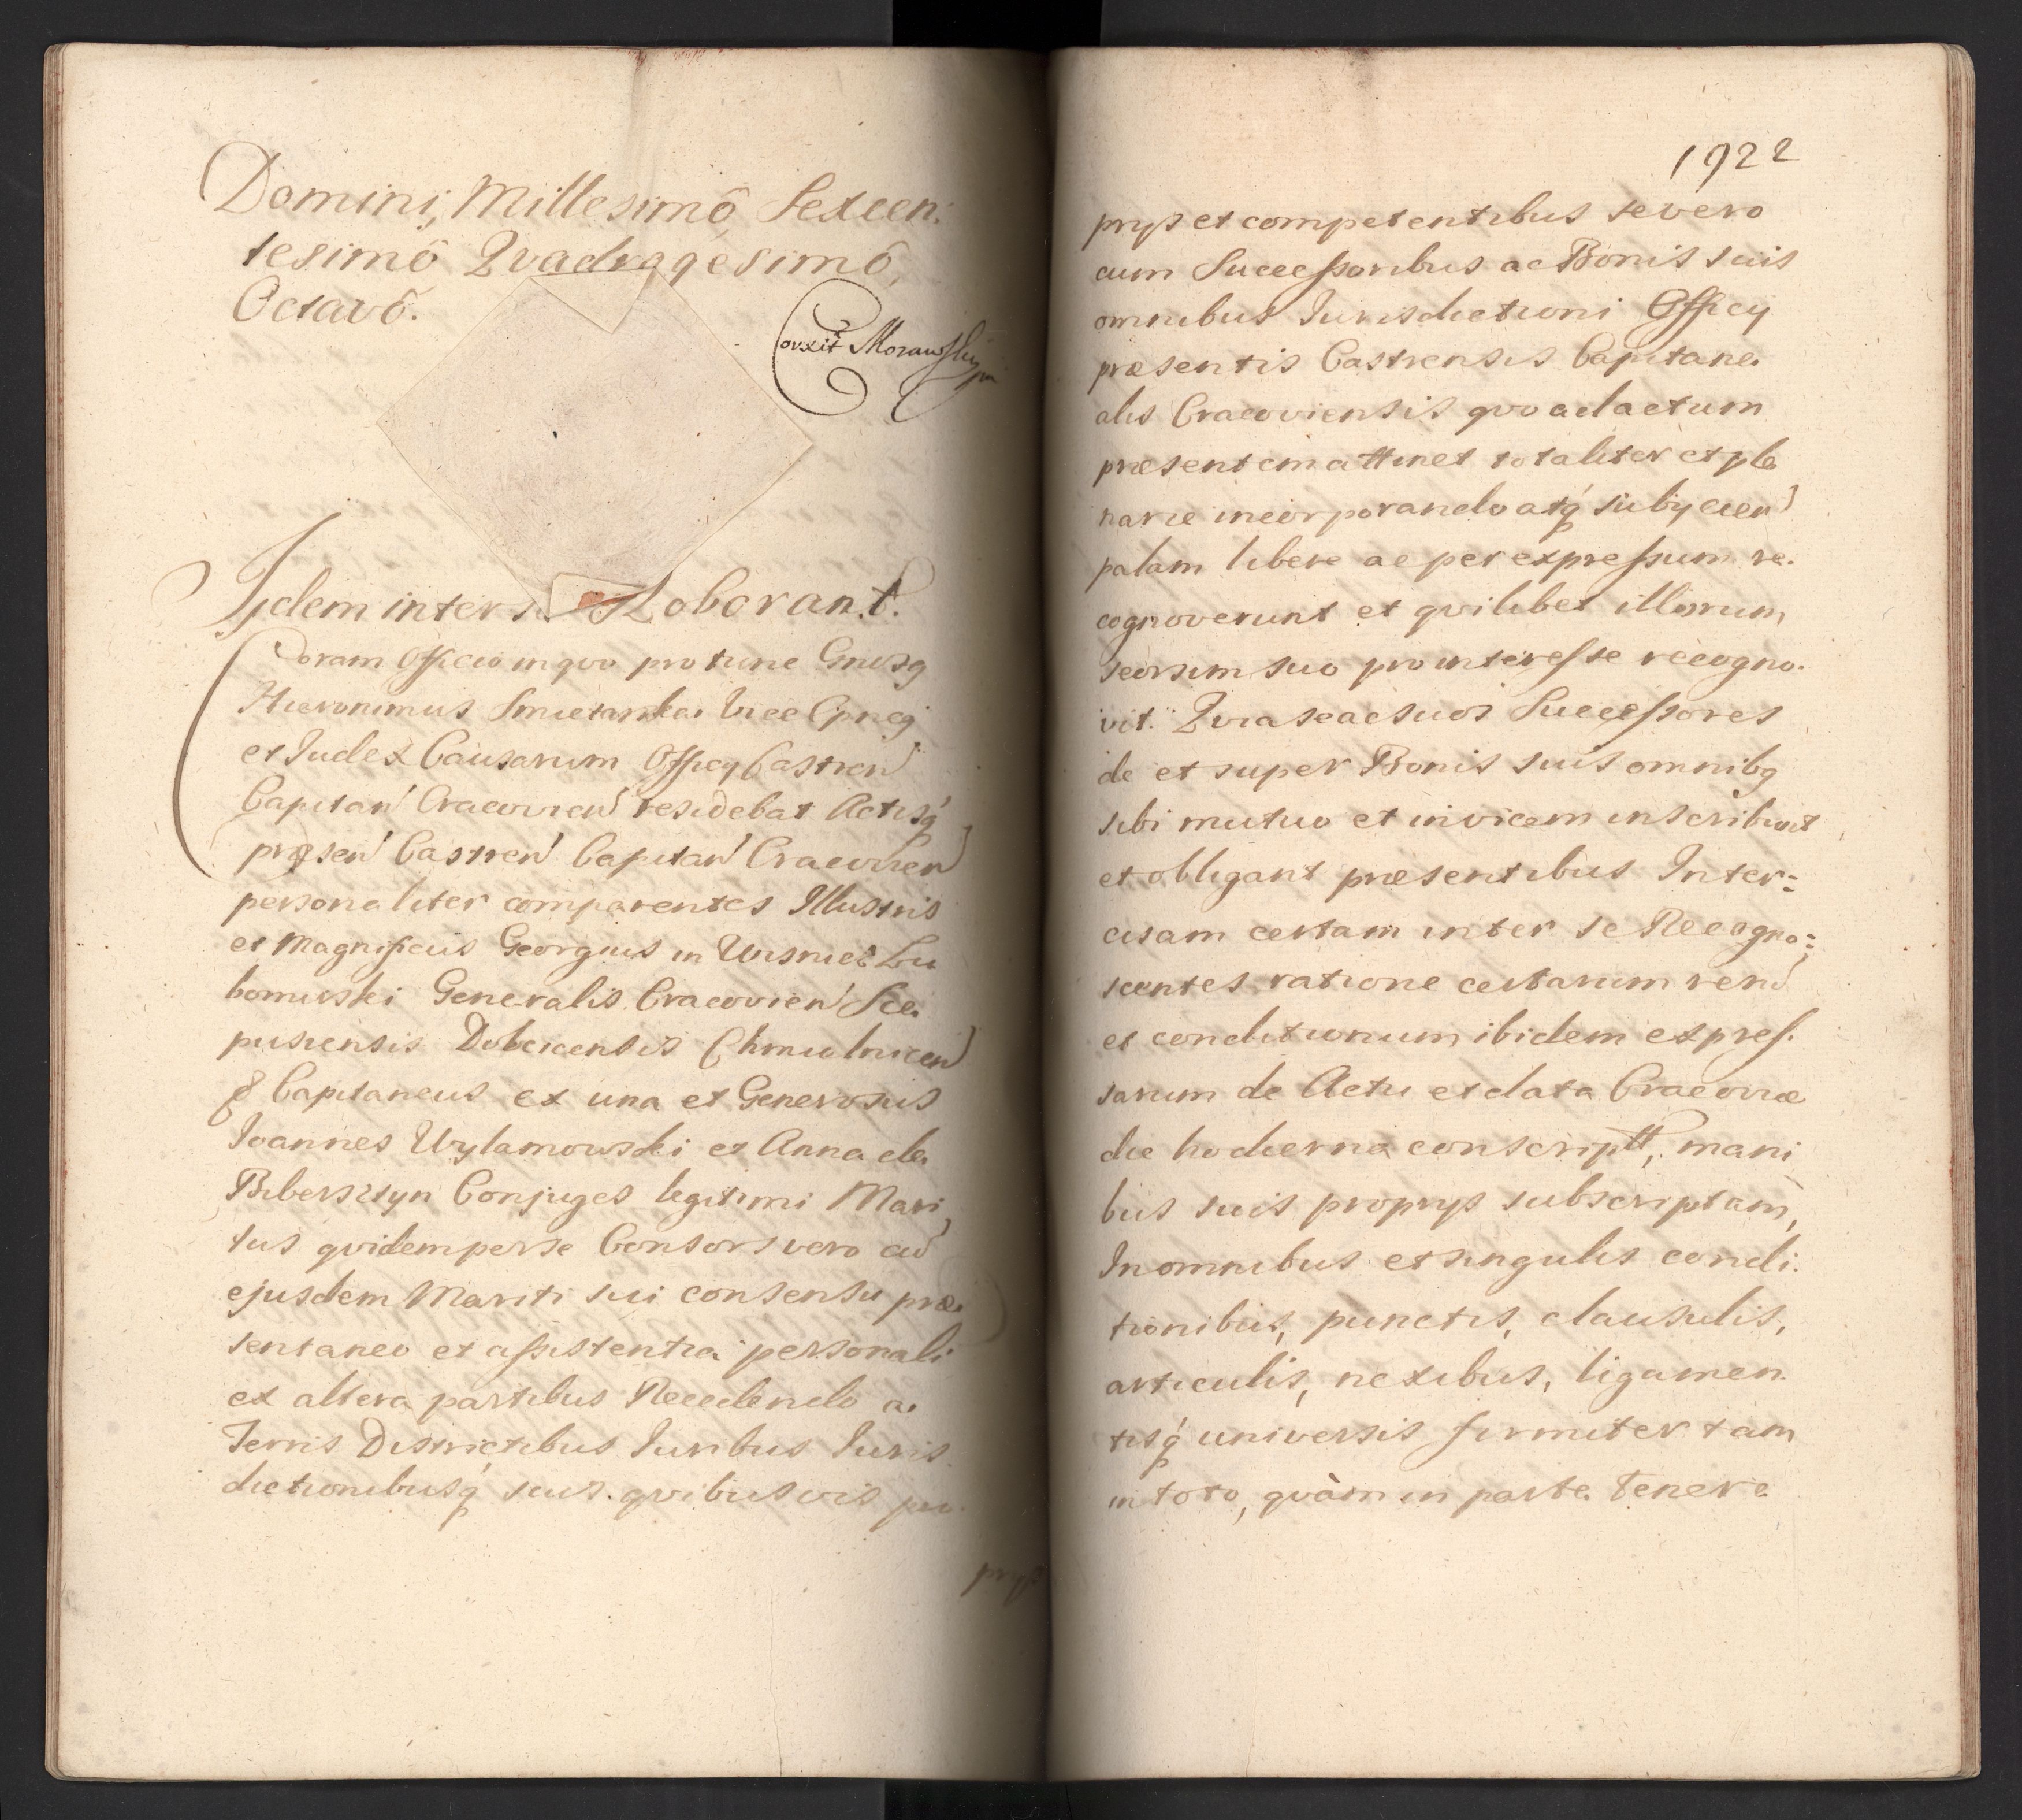 Domini, Millesimô, Sexcen:
tesimô Qvadragesimô,
Octavô.
Corexit Morawski
Ijdem inter se Roborant.
Coram Officio in qvo pro tunc Gnusq
Hieronimus Smietanka Vice Cpneq
et Iudex Causarum Officy Castren
Capitan Cracovien residebat Actisq́
præsen Castren Capitan Cracovien
personaliter comparentes Illustris
et Magnificus Georgius in Wisnicz Lu
bomirski Generalis Cracovien Sce
pusiensis Dobcicensis Chmielnicen
& Capitaneus ex una et Generosus
Ioannes Wylamowski et Anna de
Biberсztyn Conjuges legitimi Mari
tus qvidem per se Consors vero cū
ejusdem Mariti sui consensu præ
sentaneo et assistentia personali
ex altera partibus Recedendo a
Terris Districtibus Iuribus Iuris
dictionibusq́ suis qvibusvis pro
prijs
1922
prijs et competentibus se vero
cum Successoribus ac Bonis suis
omnibus Iurisdictioni Officy
præsentis Castrensis Capitane
alis Cracoviensis qvo ad actum
præsentem attinet totaliter et ple
narie incorporando atq́ subijcien
palam libere ac per expressum re.
cognoverunt et qvilibet illorum
seorsim suo pro interesse recogno.
vit. Qvia se ac suos Successores
de et super Bonis suis omnibq
sibi mutuo et invicem inscribunt
et obligant præsentibus Inter:
cisam certam inter se Recogno:
scentes ratione certarum ren
et conditionum ibidem expres.
sarum de Actu et data Cracoviæ
die hodierna conscriptt, mani
bus suis proprys subscriptam,
In omnibus et singulis condi:
tionibus, punctis, clausulis,
articulis, nexibus, ligamen
tisq́ universis firmiter tam
in toto, qvàm in parte tenere